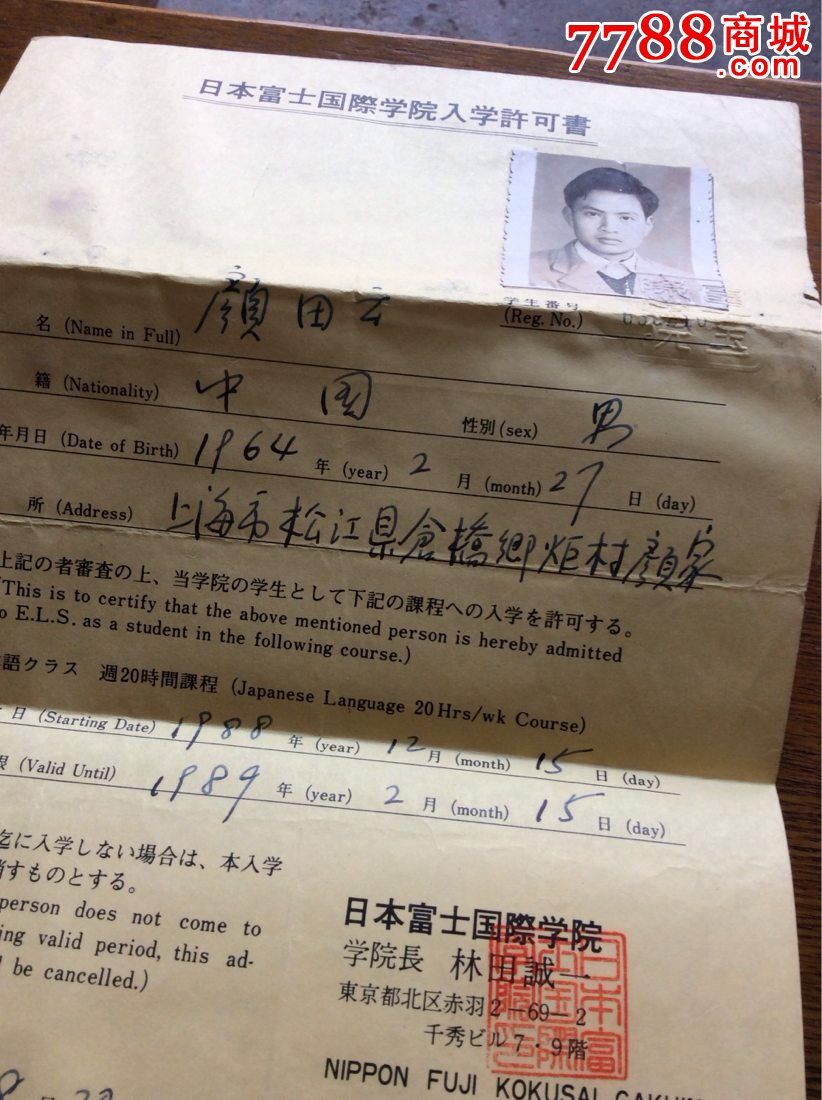 7788商城
.com
日本富士国際学院入学許可書
学生番号
名 (Name in Full) 顔田云 (Reg. No.)
籍 (Nationality) 中国 性別 (sex) 男
年月日 (Date of Birth) 1964 年 (year) 2 月 (month) 27 日 (day)
所 (Address) 上海市松江県倉橋郷炬村顔家
上記の者審査の上、当学院の学生として下記の課程への入学を許可する。
(This is to certify that the above mentioned person is hereby admitted
o E.L.S. as a student in the following course.)
語クラス 週20時間課程 (Japanese Language 20 Hrs/wk Course)
日 (Starting Date) 1988 年 (year) 12 月 (month) 15 日 (day)
限 (Valid Until) 1989 年 (year) 2 月 (month) 15 日 (day)
迄に入学しない場合は、本入学
消すものとする。
person does not come to
ing valid period, this ad-
l be cancelled.)
日本富士国際学院
学院長 林田誠一
東京都北区赤羽2-69-2
千秀ビル7・9階
NIPPON FUJI KOKUSAI GAKUIN